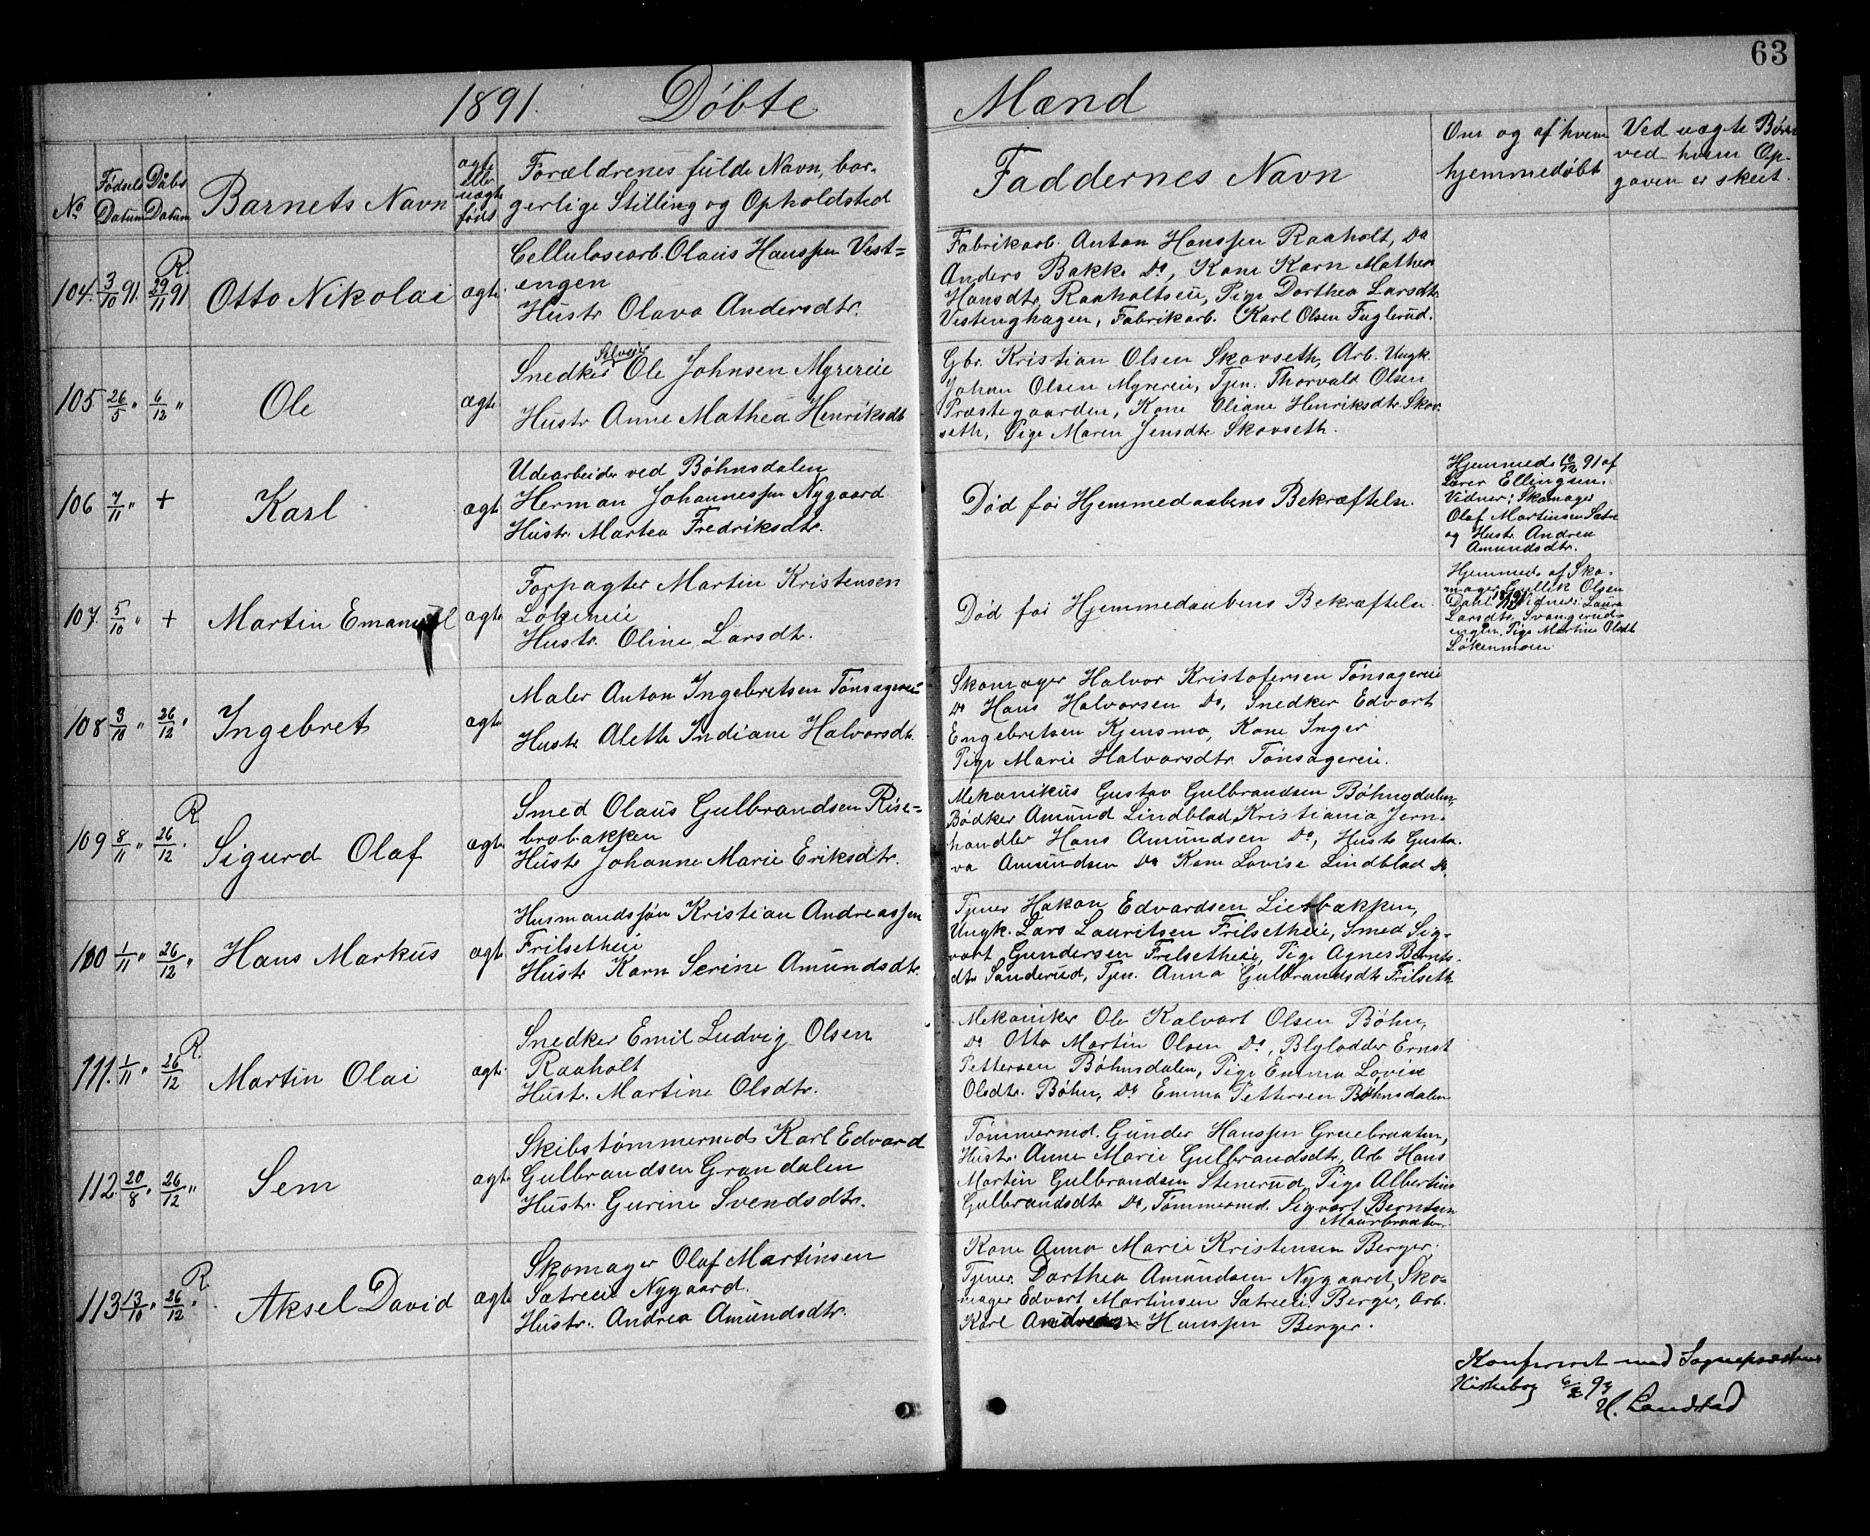 63
1891. Døbte Mænd
No
Fødsels Datum
Dåbs Datum
Barnets Navn
ægte eller uægte født
Forældrenes fulde Navn, bor-
gerlige Stilling og Opholdsted
Faddernes Navn
Om og af hvem
hjemmedøbt
Ved uægte Børn
ved hvem Op-
gaven er skeet.
104. 3/10 91. R. 29/11 91 Otto Nikolai ægte.
Cellulosearb. Olaus Hanssen Vest-
engen
Hustr Olava Andersdtr.
Fabrikarb. Anton Hanssen Raaholt, Do
Anders Bakke Do, Kone Karn Mathea
Hansdtr. Raaholtseie, Pige Dorthea Larsdtr
Vestenghagen, Fabrikarb. Karl Olsen Fuglerud.
105 26/5 " 6/12 " Ole ægte
Snedker Selveier Ole Johnsen Myrereie
Hustr Anne Mathea Henriksdtr
Gbr. Kristian Olsen Skovseth, Arb. Ungk.
Johan Olsen Myrereie, Tjen. Thorvald Olsen
Præstegaarden, Kone Oliane Henriksdtr Skov-
seth, Pige Maren Jensdtr Skovseth.
106 7/11 " + Karl ægt.
Udearbeider ved Bøhnsdalen
Herman Johannessen Nygaard
Hustr. Martea Fredriksdtr.
Død før Hjemmedaabens Bekræftelse.
Hjemmed. 10/12 91 af
Lærer Ellingsen.
Vidner: Skomager
Olaf Martinsen Sætre
og Hustr Andrea
Amundsdtr.
107. 5/10 " + Martin Emanuel ægte
Forpagter Martin Kristensen
Løkeneie
Hustr. Oline Larsdtr.
Død før Hjemmedaabens Bekræftelse.
Hjemmed. af Sko-
mager Gullik Olsen
Dahl Vidner: Laura
Larsdtr. Svangerud-
engen, Pige Martine Olsdtr
Løkenmoen
108 9/10 " 26/12 " Ingebret ægte
Maler Anton Ingebretsen Tønsagereie
Hustr Alette Indiane Halvorsdtr.
Skomager Halvor Kristofersen Tønsagereie
Do Hans Halvorsen Do, Snedker Edvart
Engebretsen Kjensmo, Kone Inger
Pige Marie Halvorsdtr Tønsagereie.
109 8/11 " R 26/12 " Sigurd Olaf ægt.
Smed Olaus Gulbrandsen Rise-
brobakken
Hustr Johanne Marie Eriksdtr.
Mekanikus Gustav Gulbrandsen Bøhnsdalen,
Bødker Amund Lindblad Kristiania Jern-
handler Hans Amundsen Do, Hustr Gusta-
va Amundsen Do Kone Lovise Lindblad Do.
110 1/11 " 26/12 " Hans Markus ægt.
Husmandssøn Kristian Andreassen
Frilsetheie
Hustr Karn Serine Amundsdtr.
Tjener Hakon Edvardsen Lierbakken,
Ungk. Lars Lauritsen Frilsetheie, Smed Sig-
vart Gundersen Frilsetheie, Pige Agnes Bernts-
dtr Sanderud, Tjen. Anna Gulbrandsdtr Frilseth
111. 1/11 " R. 26/12 Martin Olai ægt.
Snedker Emil Ludvig Olsen
Raaholt
Hustr. Martine Olsdtr.
Mekaniker Ole Kalvart Olsen Bøhn,
Do Otto Martin Olsen Do, Blylodder Ernst
Pettersen Bøhnsdalen, Pige Emma Lovise
Olsdtr. Bøhn, Do Emma Pettersen Bøhnsdalen
112. 20/8 " 26/12 " Sem ægt.
Skibstømmermd. Karl Edvard
Gulbrandsen Grandalen
Hustr. Gurine Svendsdtr.
Tømmermd. Gunder Hanssen Gruebraaten,
Hustr. Anne Marie Gulbrandsdtr, Arb Hans
Martin Gulbrandsen Stenerud, Pige Albertine
Gulbrandsdtr Do, Tømmermd. Sigvart Berntsen
Maurbraaten
113 13/10 " R. 26/12 " Aksel David ægte
Skomager Olaf Martinsen
Sætreeie Nygaard.
Hustr. Andrea Amundsdtr.
Kone Anna Marie Kristensen Berger,
Tjener Dorthea Amundsen Nygaard, Sko-
mager Edvart Martinsen Sætreeie Berger, Arb.
Karl Hanssen Berger.
Konfereret med Sognepræstens
Kirkebog 6/2 93
H. Landstad